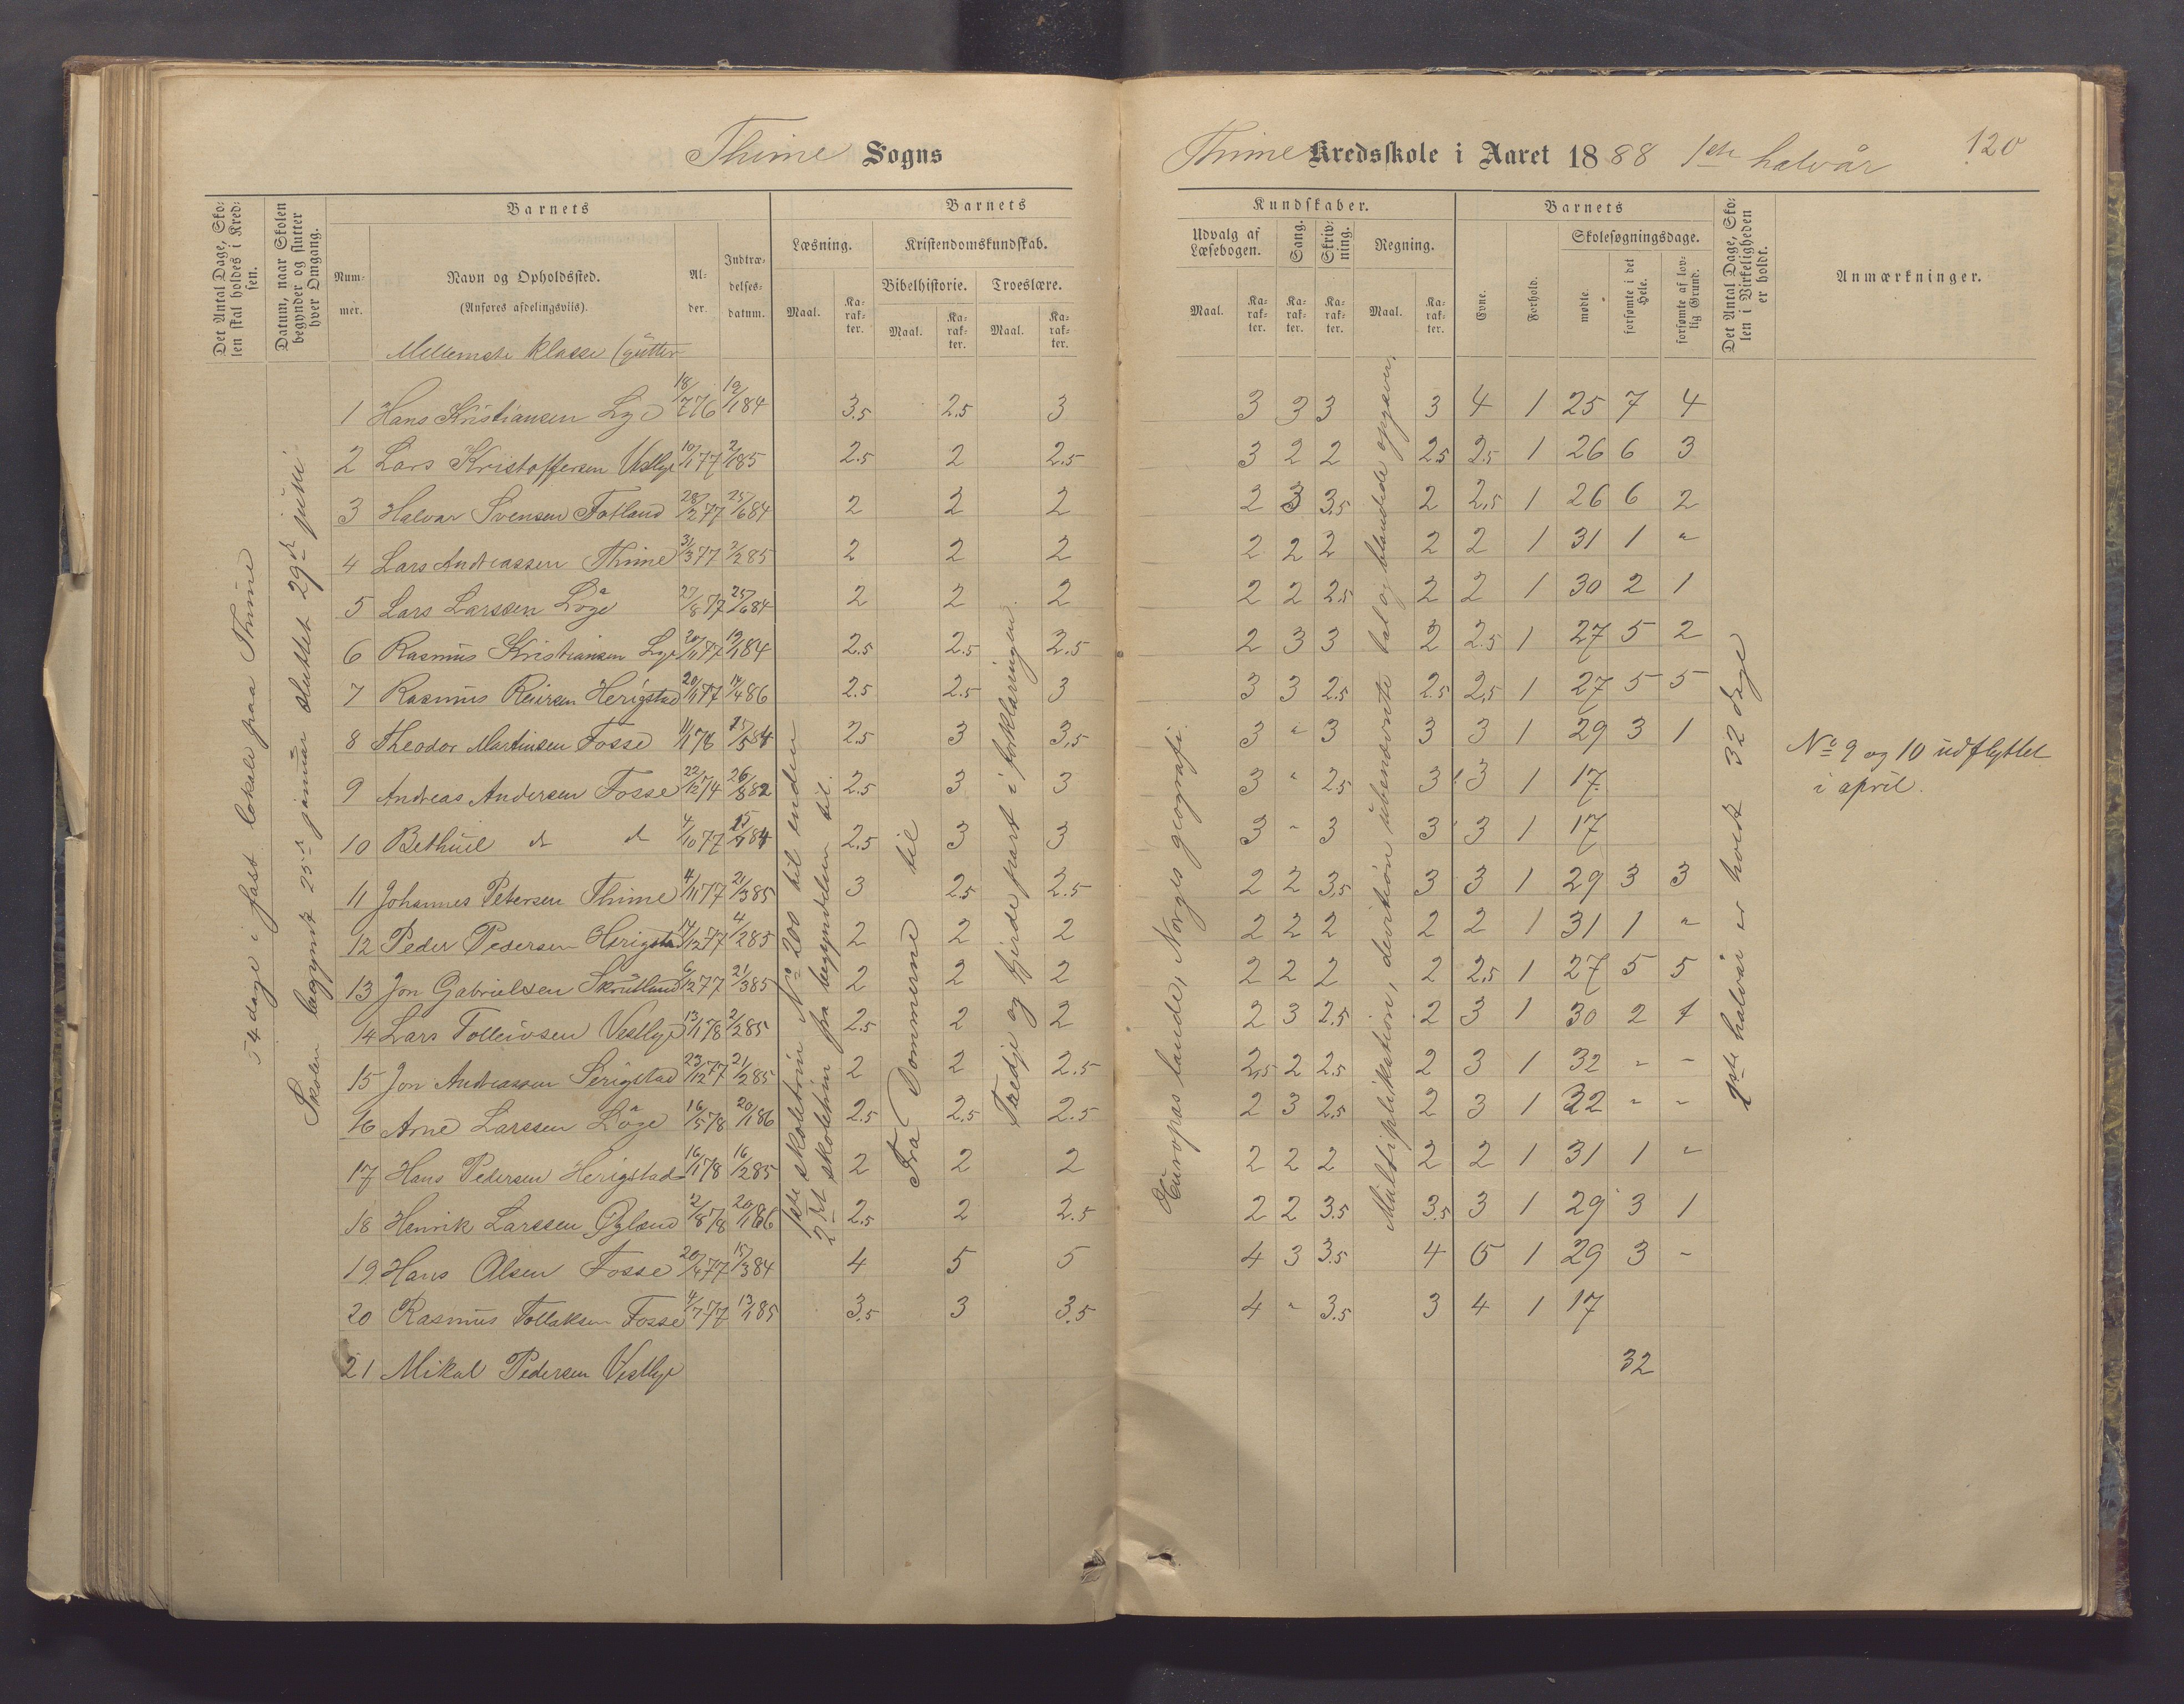 Thime Sogns
Thime Kredsskole i Aaret 1888 1ste halvår
120
Det Antal Dage, Skolen skal holdes i Kredsen.
Datum, naar Skolen begynder og slutter hver Omgang.
Barnets
Nummer.
Navn og Opholdssted.
(Anføres afdelingsviis).
Alder.
Indtrædelsesdatum.
Barnets
Læsning.
Kristendomskundskab.
Bibelhistorie.
Troeslære.
Maal.
Karakter.
Maal.
Karakter.
Maal.
Karakter.
Kundskaber.
Udvalg af Læsebogen.
Sang.
Skrivning.
Regning.
Maal.
Karakter.
Karakter.
Karakter.
Maal.
Karakter.
Barnets
Evne.
Forhold.
Skolesøgningsdage.
mødte.
forsømte i det Hele.
forsømte af lovlig Grund.
Det Antal Dage, Skolen i Virkeligheden er holdt.
Anmærkninger.
54 dage i fast lokale paa Thime
Skolen begyndt 25de januar sluttet 29de juni
Mellemste klasse (gutter
1ste skoletrin No 200 til enden
2det skoletrin fra begyndelsen til
Fra Dommerne til
Tredje og fjerde part i forklaringen.
Europas lande, Norges geografi.
Multiplikation, division ubenævnte tal og blandede opgaver.
1ste halvår er holdt 32 dage
1 Hans Kristiansen Lye 18/7 76 19/1 84 3.5 2.5 3 3 3 3 3 4 1 25 7 4
2 Lars Kristoffersen Vestlye 10/1 77 2/1 85 2.5 2 2.5 3 2 2 2.5 2.5 1 26 6 3
3 Halvar Svensen Fotland 28/2 77 25/6 84 2 2 2 2 3 3.5 2 2.5 1 26 6 2
4 Lars Andreassen Thime 31/3 77 2/2 85 2 2 2 2 2 2 2 2 1 31 1 "
5 Lars Larssen Løge 27/8 77 25/6 84 2 2 2 2 2 2.5 2 2 1 30 2 1
6 Rasmus Kristiansen Lye 20/11 77 19/1 84 2.5 2.5 2.5 2 3 3 2 2.5 1 27 5 2
7 Rasmus Reiersen Herigstad 20/1 77 14/4 86 2.5 2.5 3 3 3 2.5 2.5 2.5 1 27 5 5
8 Theodor Martinsen Fosse 11/1 78 15/5 84 2.5 3 3.5 3 " 3 3 3 1 29 3 1
9 Andreas Andersen Fosse 22/12 74 26/8 82 2.5 3 3 3 " 2.5 3 3 1 17
No 9 og 10 udflyttet
i april.
10 Bethuel d d 4/10 77 84 2.5 3 3 3 " 3 3 3 1 17
11 Johannes Petersen Thime 4/11 77 21/3 85 3 2.5 2.5 2 2 3.5 3 3 1 29 3 3
12 Peder Pedersen Herigstad 14/12 77 4/2 85 2 2 2 2 2 2 2 2 1 31 1 "
13 Jon Gabrielsen Skrutland 6/12 77 21/3 85 2 2 2 2 2 2 2 2.5 1 27 5 5
14 Lars Tolleivsen Vestlye 13/1 78 2/2 85 2.5 2 2 2 3 2.5 2 3 1 30 2 1
15 Jon Andreassen Serigstad 23/12 77 21/2 85 2 2 2.5 2.5 2 2.5 2 3 1 32 " "
16 Arne Larssen Løge 16/5 78 20/1 86 2.5 2.5 2.5 2 3 2.5 2 3 1 32 " "
17 Hans Pedersen Herigstad 16/1 78 16/2 85 2 2 2 2 2 2 2 2 1 31 1 "
18 Henrik Larssen Øgland 2/8 78 20/1 86 2.5 2 2.5 2 2 3.5 3.5 3 1 29 3 1
19 Hans Olsen Fosse 20/4 77 15/3 84 4 5 5 4 3 3.5 4 5 1 29 3 "
20 Rasmus Tollaksen Fosse 4/7 77 13/1 85 3.5 3 3.5 4 " 3.5 3 4 1 17
21 Mikal Pedersen Vestlye 32